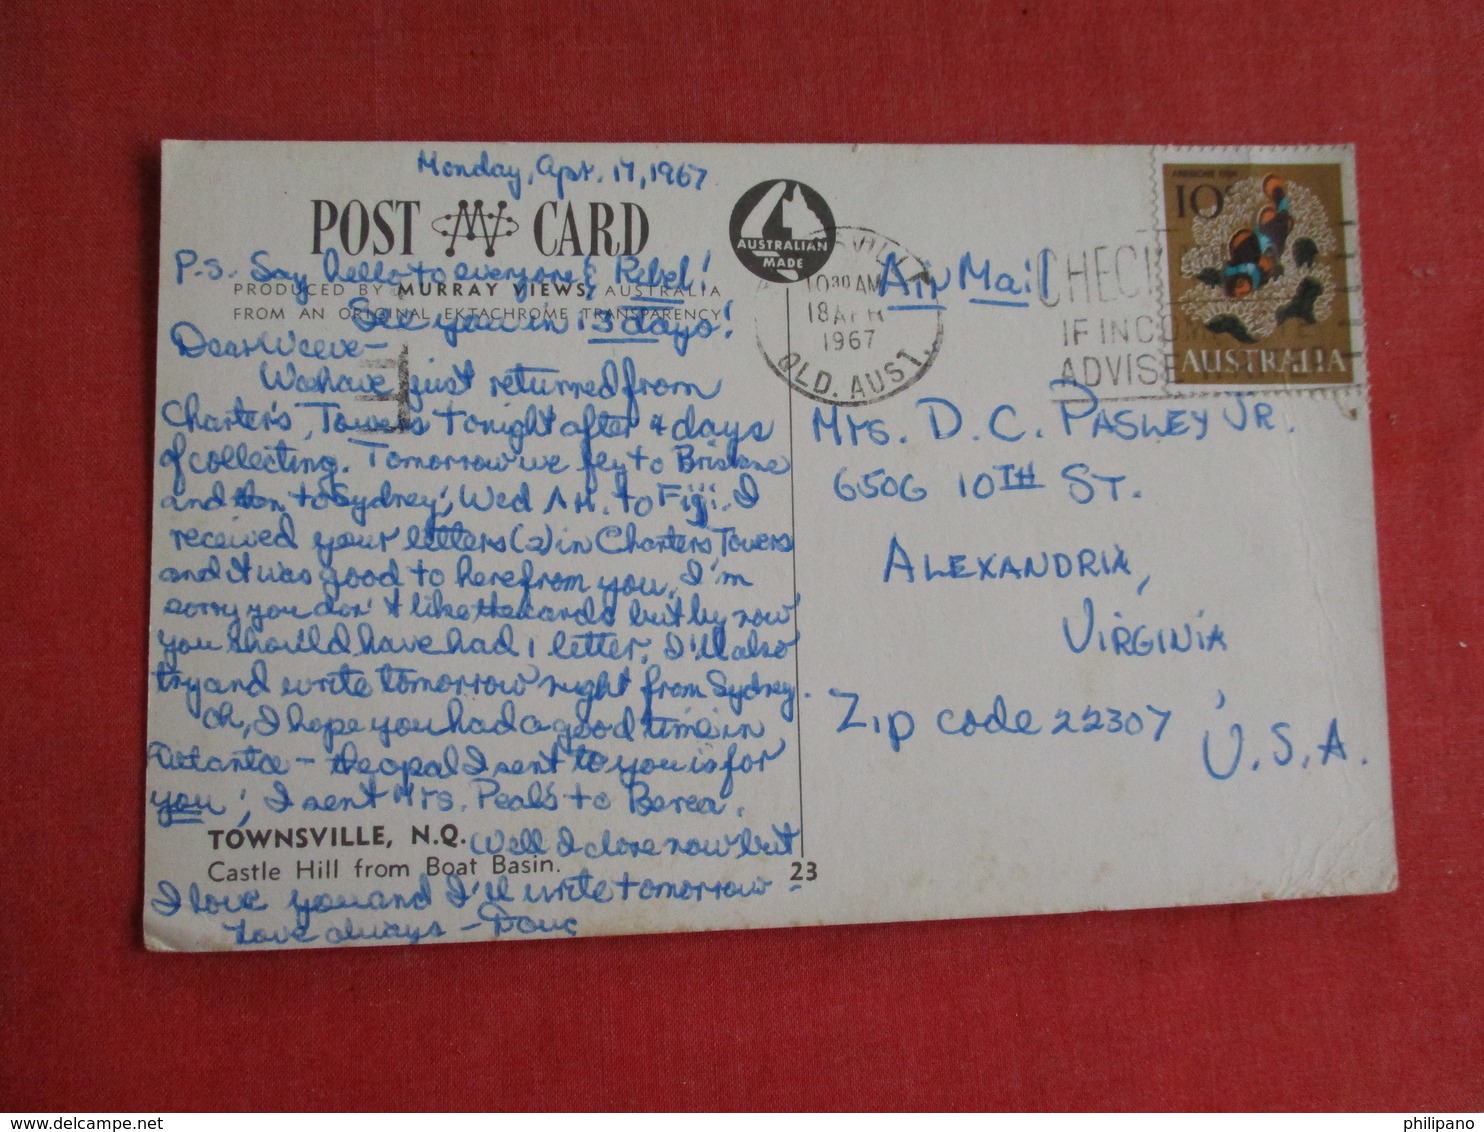 Monday, Apr. 17, 1967
POST CARD
AUSTRALIAN
MADE
P.S. Say hello to everyone & Rebel!
PRODUCED BY MURRAY VIEWS, AUSTRALIA
FROM AN ORIGINAL EKTACHROME TRANSPARENCY
See you in 13 days!
Dear
We have just returned from
Charter's, Towers tonight after 4 days
of collecting. Tomorrow we fly to Brisbane
and then to Sydney; Wed A.M. to Fiji. I
received your letters (2) in Charters Towers
and it was good to here from you. I'm
sorry you don't like the cards but by now
you should have had 1 letter. I'll also
try and write tomorrow night from Sydney.
Oh, I hope you had a good time in
Atlanta - the opal I sent to you is for
you; I sent Mrs. Peal's to Berea.
TOWNSVILLE, N.Q.
Castle Hill from Boat Basin.
Well I close now but
I love you and I'll write tomorrow -
Love always - Doug
23
SVILLE
10 30 AM
18 APR
1967
QLD. AUST.
Air Mail
CHECK
IF INCO
ADVISE
ANEMONE FISH
10c
AUSTRALIA
Mrs. D. C. PASLEY JR.
6506 10TH ST.
ALEXANDRIA,
VIRGINIA
Zip code 22307
U.S.A.
philipano
delcampe.net